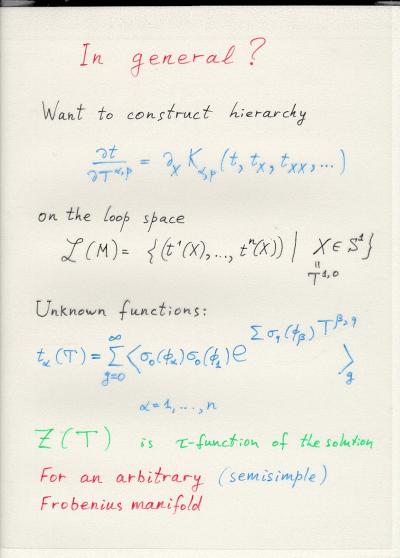 In general?
Want to construct hierarchy
∂t/∂T^{α,p} = ∂_X K_{α,p}(t, t_X, t_{XX}, ...)
on the loop space
ℒ(M) = {(t^1(X), ..., t^n(X)) | X ∈ S^1}
‖
T^{1,0}
Unknown functions:
t_α(T) = ∑_{g=0}^{∞} ⟨σ_0(ϕ_α)σ_0(ϕ_1) e^{∑ σ_q(ϕ_β) T^{β,q}}⟩_g
α = 1, ..., n
Z(T) is τ-function of the solution
For an arbitrary (semisimple)
Frobenius manifold